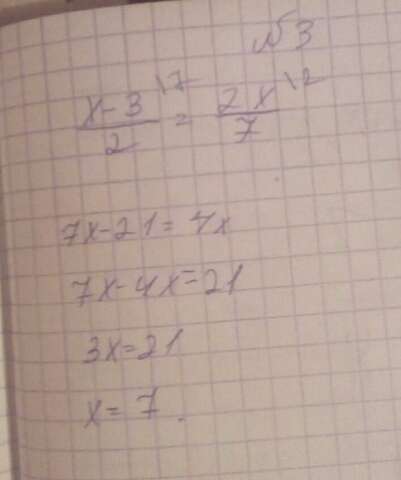 №3
x-3\7 / 2 = 2x\2 / 7
7x-21=4x
7x-4x=21
3x=21
x=7.